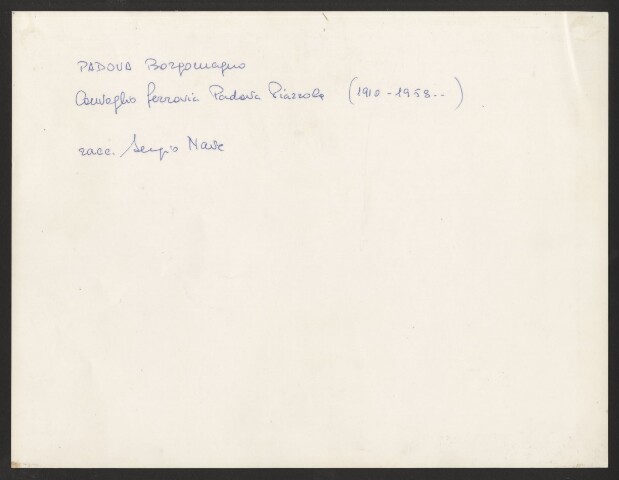 PADOVA Borgomagno
Convoglio ferrovia Padova Piazzola (1910-1958--)
racc. Sergio Nave